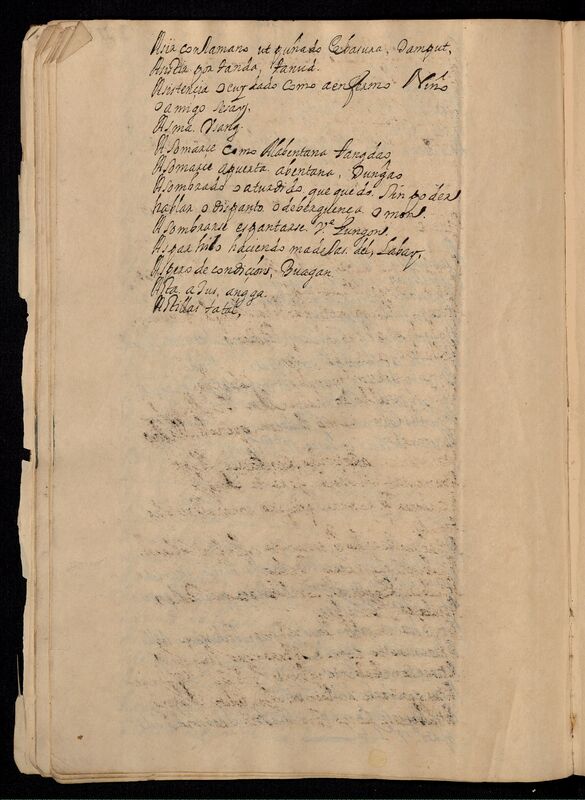 Asir con la mano ut puñado Ebasura, Damput,
Asistir por tanda, tanud.
Asistencia o cuydado como a enfermo Niño
o amigo sesay,
Asma. Usang.
Asomarse como Alabentana tangdao
Asomarse apuerta abentana, Dungao
Asombrado o aturdido que quedo sin poder
hablar o dispanto o deberguença o mohl.
Asombrarse espantarse. Vᵉ Lungon.
Aspar hilo haciendo madexas. del, Labay,
Aspero de condicion, Buagan
Asta a Jus. angga.
Astillas tatal,